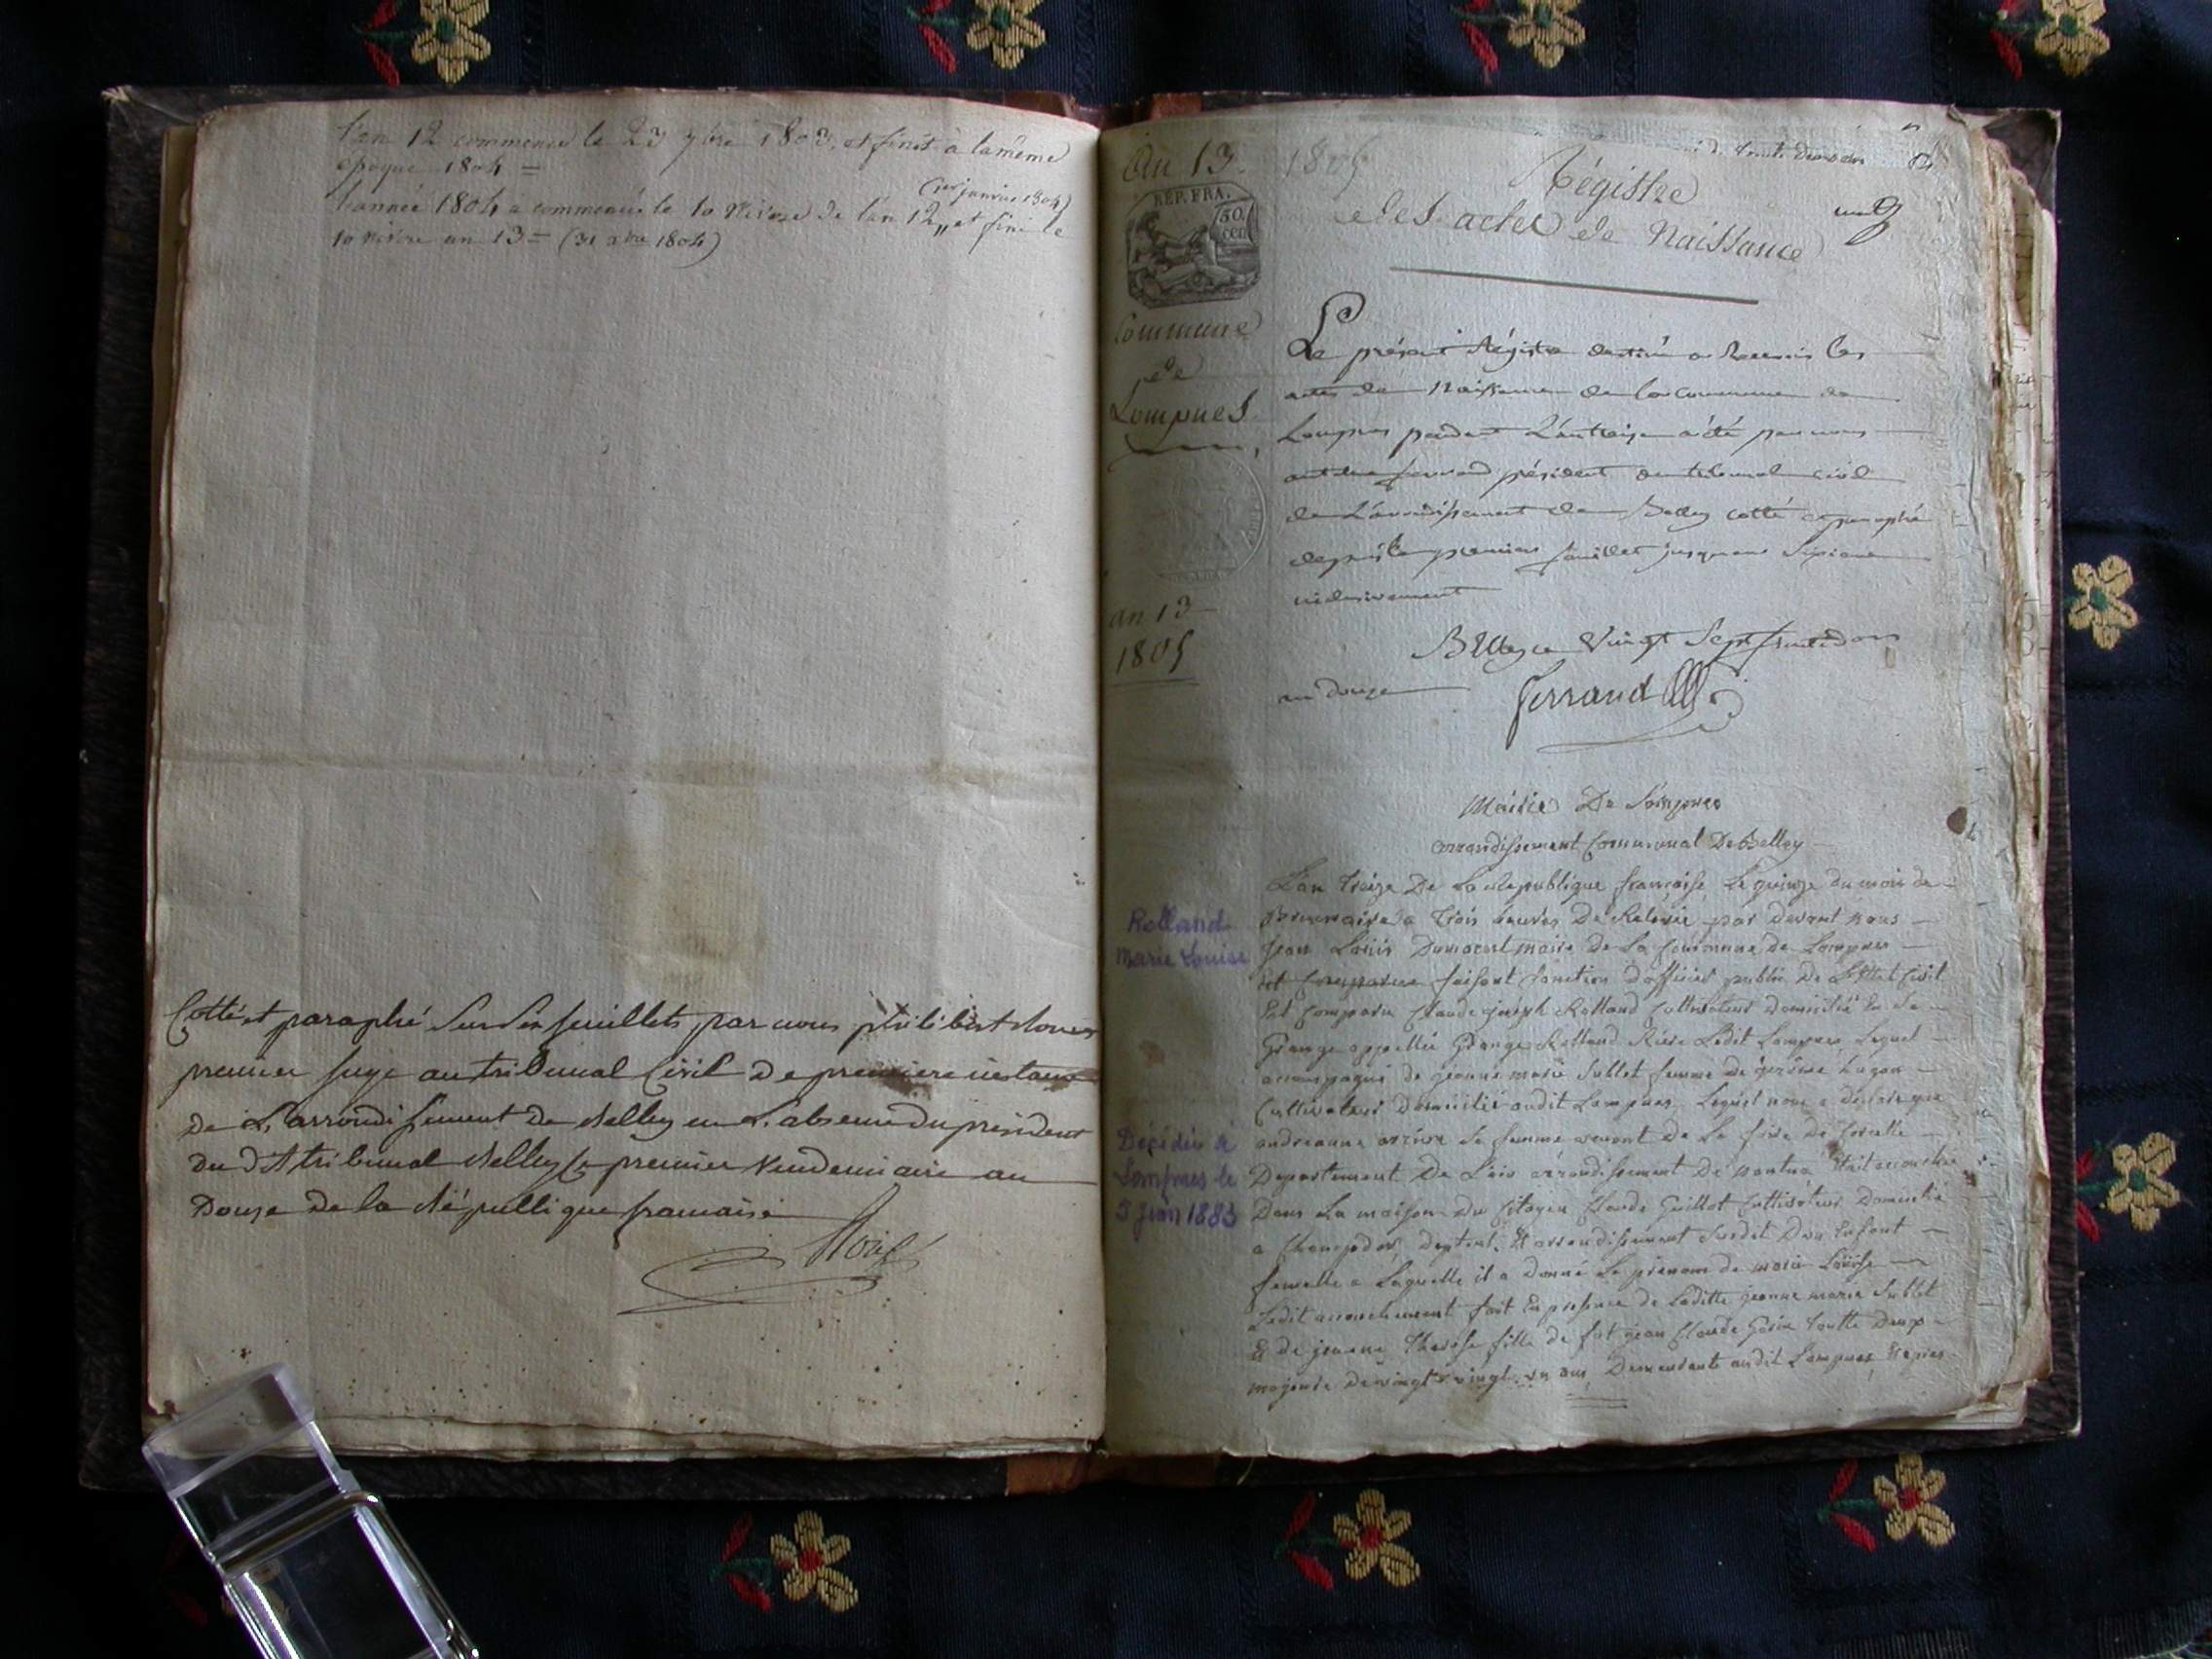 L'an 12 commence le 23 7bre 1803, et finit à la même
epoque 1804 =
(1er janvier 1804)
L'année 1804 a commencé le 10 Nivose de l'an 12, et fini le
10 nivose an 13 = (31 xbre 1804)
Cotté et paraphé sur six feuillets par nous philibert
premier juge au tribunal Civil de premiere instance
de L'arrondissement de Belley en L'absence du president
du dit tribunal Belley le premier Vendemiaire an
Douze de la République francaise
an 13. 1805
REP. FRA.
50
cen
Régistre
des actes de Naissance
Commune
de
Lompnes
an 13
1805
Le présent Régistre destiné a Recevoir les
actes de Naissance de la commune de
Lompnes pendant L'an treize a été par nous
ferrand président du tribunal civil
de L'arrondissement de Belley cotté et paraphé
depuis le premier feuillet jusqu'au Sixieme
inclusivement
Belley ce Vingt Sept fructidor
an Douze
Ferrand
Mairie De Lompnes
arrondissement Communal De Belley
Rolland
Marie Louise
Décédée à
Lompnes le
5 juin 1883
L'an treize De La Republique françoise Le quinze du mois de
Brumaire a trois heures De Relevée par devant nous
Jean Louis Dumarest maire De La Commune De Lompnes
faisant fonction d'officier public De L'Etat Civil
Est Comparu Claude joseph Rolland Cultivateur Domicilié En La
Grange appellée Grange Rolland Riere Ledit Lompnes Lequel
accompagné de jeanne marie Sublet femme de
Cultivateur Domicilié audit Lompnes Lequel nous a déclaré que
sa femme
Departement De L'ain arrondissement De nantua Etait accouchée
Dans La maison Du Citoyen Claude Guillot Cultivateur Domicilié
a Champdor, Et arrondissement Susdit D'un Enfant
femelle a Laquelle il a Donné Le prenom de marie Louise
Ledit accouchement fait En presence de Laditte jeanne marie Sublet
Et de jeanne Therese fille de jean Claude
majeure De vingt un ans Demeurante audit Lompnes